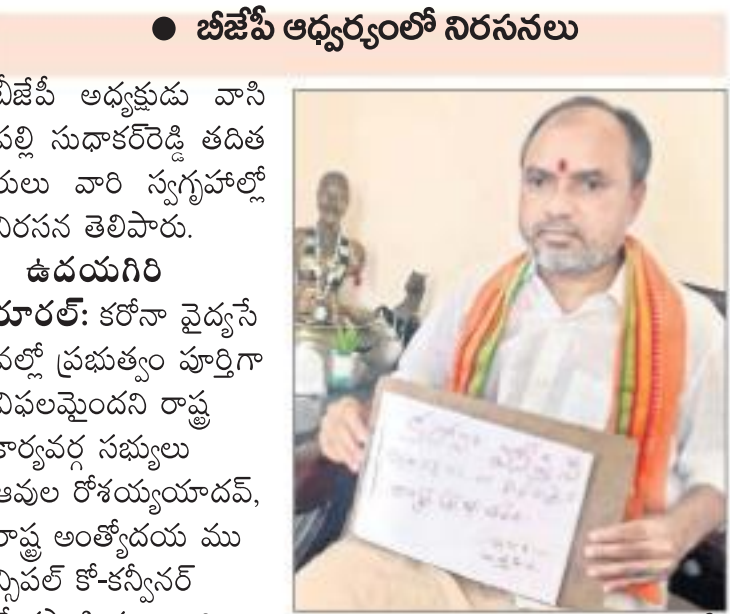 ● బీజేపీ ఆధ్వర్యంలో నిరసనలు
బీజేపీ అధ్యక్షుడు వాసి
పల్లి సుధాకర్‌రెడ్డి తదిత
రులు వారి స్వగృహాల్లో
నిరసన తెలిపారు.
ఉదయగిరి
రూరల్: కరోనా వైద్యసే
వల్లో ప్రభుత్వం పూర్తిగా
విఫలమైందని రాష్ట్ర
కార్యవర్గ సభ్యులు
ఆవుల రోశయ్యయాదవ్,
రాష్ట్ర అంత్యోదయ ము
న్సిపల్ కో-కన్వీనర్